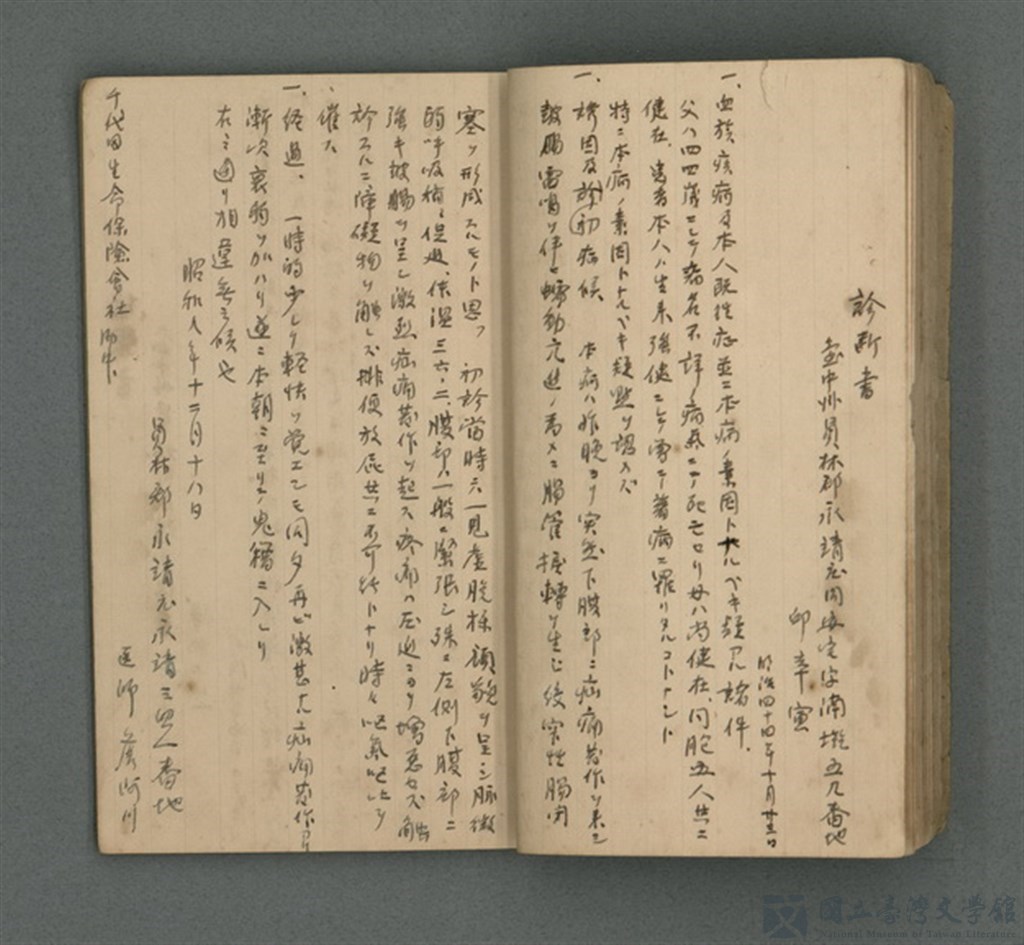 診断書
臺中州員林郡永靖庄同安宅字湳墘五九番地
邱辛寅
明治四十四年十月廿三日
一、血族疾病及本人既往症並ニ本病ノ素因トナルベキ疑アル諸件、
父ハ四四歳ニシテ病名不詳ノ病気ニテ死亡セリ母ハ尚健在、同胞五人共ニ
健在、患者本人ハ生来強健ニシテ曽テ著病ニ罹リタルコトナシト
特ニ本病ノ素因トナルベキ疑点ヲ認メズ
一、誘因及診初症候、本病ハ昨晩ヨリ突然下腹部ニ疝痛発作ヲ来シ
鼓腸雷鳴ヲ伴ヒ蠕動亢進ノ為メニ腸管捻転ヲ生ジ後窄性腸閉
塞ヲ形成スルモノト思フ 初診當時ハ一見虚脱様顔貌ヲ呈シ脈微
弱呼吸稍々促迫、体温三六・二、腹部ハ一般ニ緊張シ殊ニ左側下腹部ニ
強キ鼓腸ヲ呈シ激烈疝痛発作ヲ起ス疼痛ハ圧迫ニヨリ増悪セズ触
診スルニ障碍物ヲ触レズ排便放屁共ニ不可能トナリ時々呃気呃逆ヲ
催ス
一、経過、 一時的少シク軽快ヲ覚エシモ同夕再ビ激甚ナル疝痛発作アリ
漸次衰弱ヲ加ハリ遂ニ本朝ニ至リテ鬼籍ニ入レリ
右之通リ相違無之候也
昭和八年十二月十八日
員林郡永靖庄永靖三四八番地
医師 詹阿川
千代田生命保險會社御中
國立臺灣文學館
National Museum of Taiwan Literature